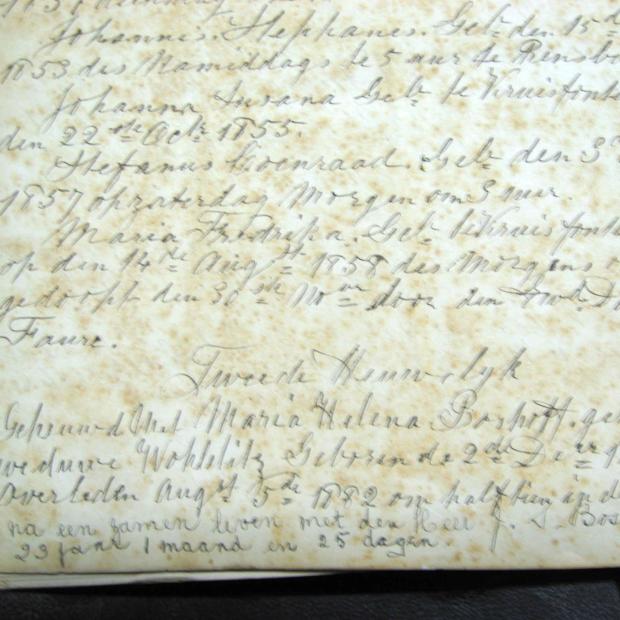 Johannes. Stephanes. Geb^r den 15^d
1853 des Namiddags te 5 uur te Rensb
Johanna Susana Geb^r te Kruisfonte
den 22^ste Oct^r 1855.
Stefanus Coenraad. Geb^r den 3
1857 op zaterdag Morgen om 3 uur.
Maria Fredrika. Geb^r te Kruisfonte
op den 14^de Aug^st 1858 des Morgens o
gedoopt den 30^ste No^m door den Ew^d. D
Faure.
Tweede Heuwelyk
Geheuwd Met Maria Helena Boshoff. ge
weduwe Wohlitz Geboren de 2^de De
Overleden Aug^st 5^de 1882 om half tien in d
na een zamen leven met den Heer J. L Bos
29 jaar 1 maand en 25 dagen.